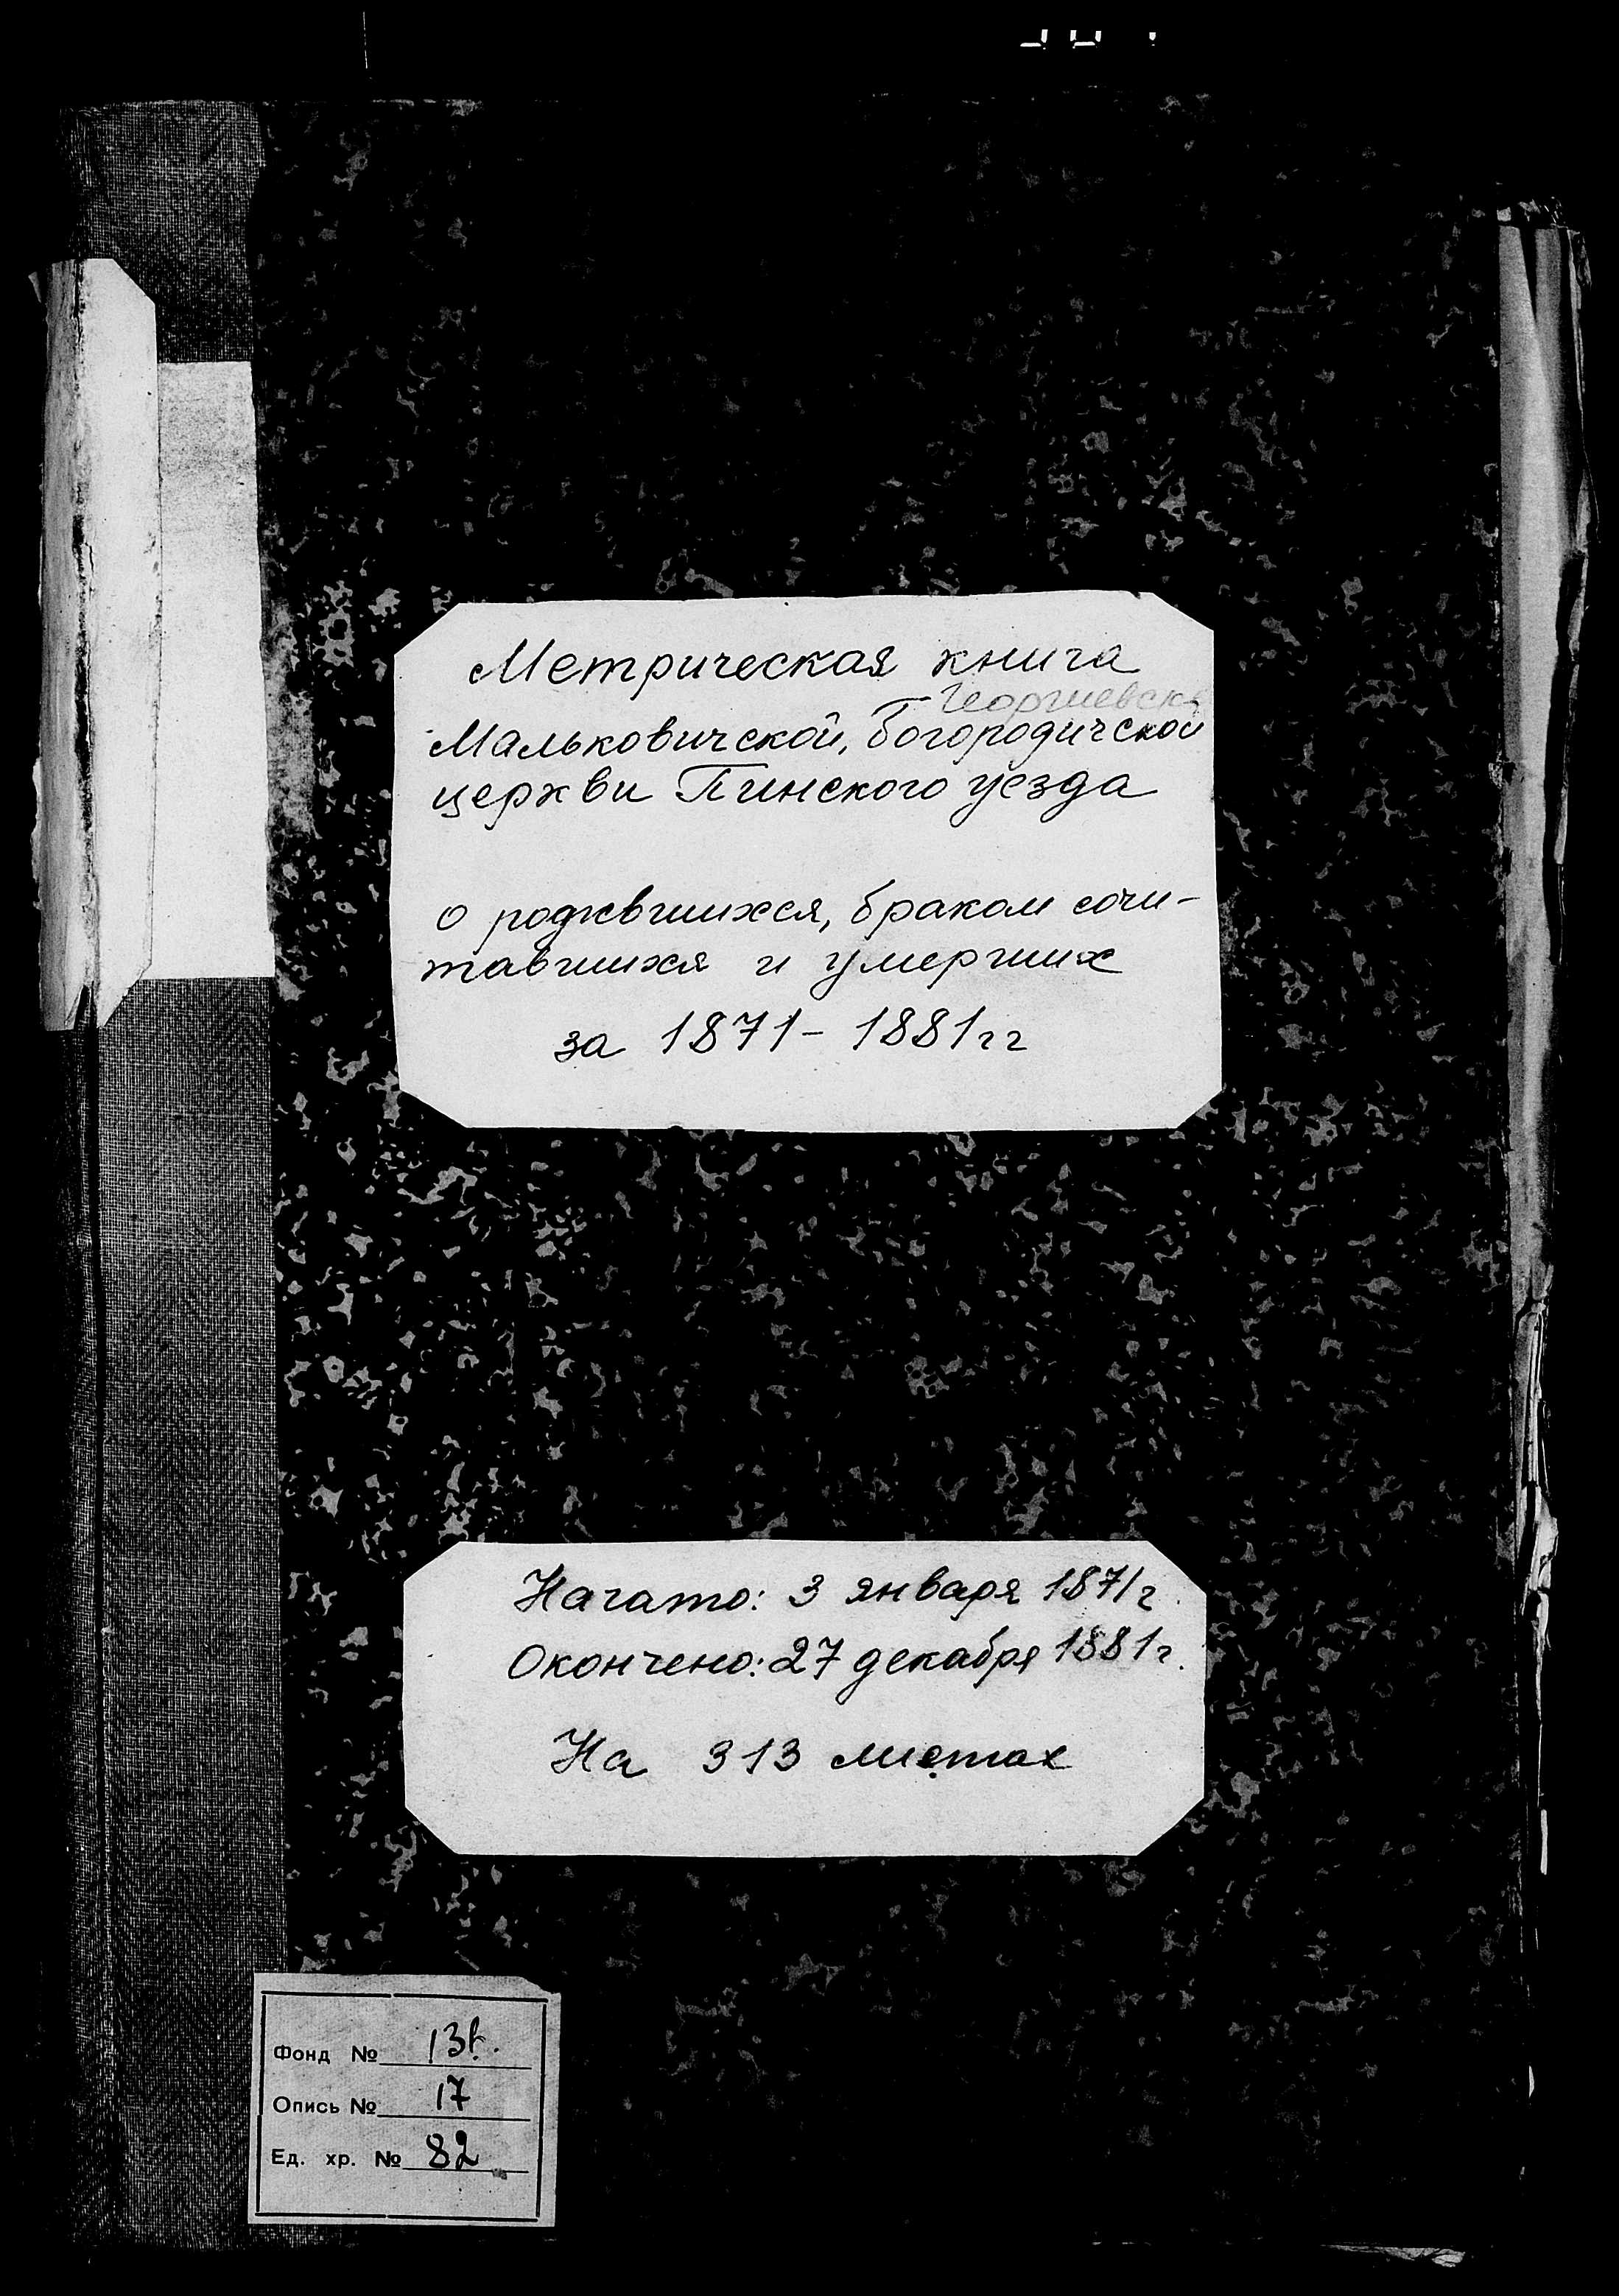 Метрическая книга
Георгиевск
Мальковичской, Богородичской
церкви Пинского уезда
о родившихся, браком сочи-
тавшихся и умерших
за 1871 - 1881 гг
Начато: 3 января 1871 г.
Окончено: 27 декабря 1881 г.
На 313 листах
Фонд №
Опись № 17
Ед. хр. № 82